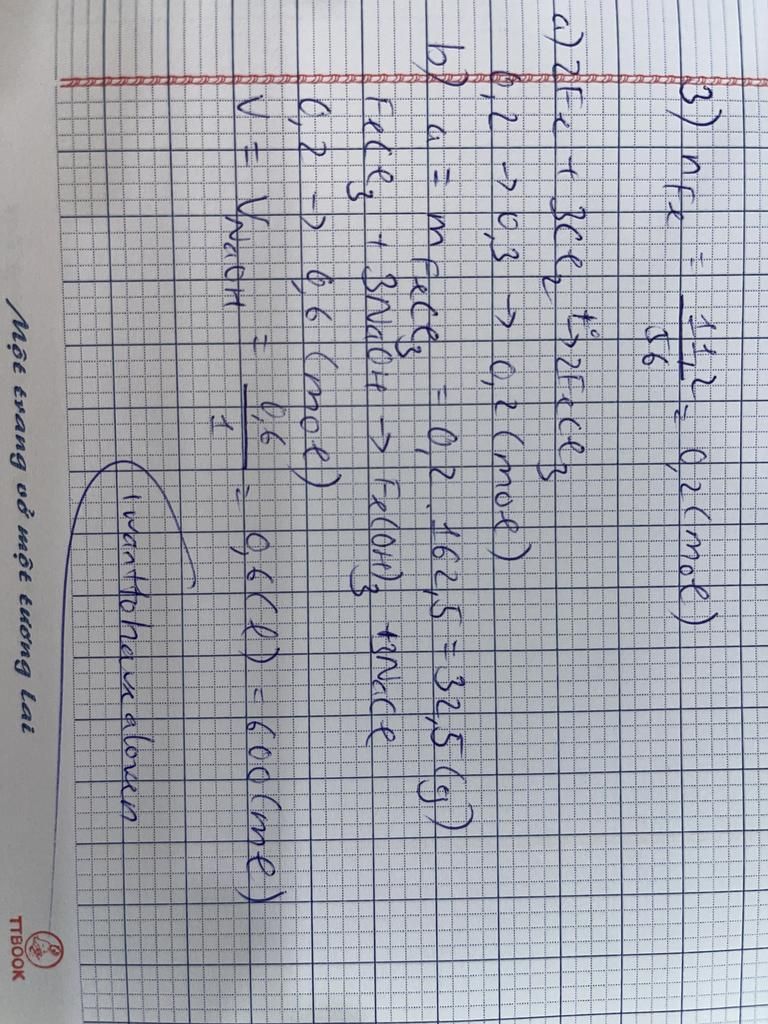 3) nFe = 11,2/56 = 0,2 (mol)
a) 2Fe + 3Cl2 t°→ 2FeCl3
0,2 → 0,3 → 0,2 (mol)
b) a = mFeCl3 = 0,2.162,5 = 32,5 (g)
FeCl3 + 3NaOH → Fe(OH)3 + 3NaCl
0,2 → 0,6 (mol)
V = VNaOH = 0,6/1 = 0,6 (l) = 600 (ml)
I want to have a
Một trang vở một tương lai
TTBOOK